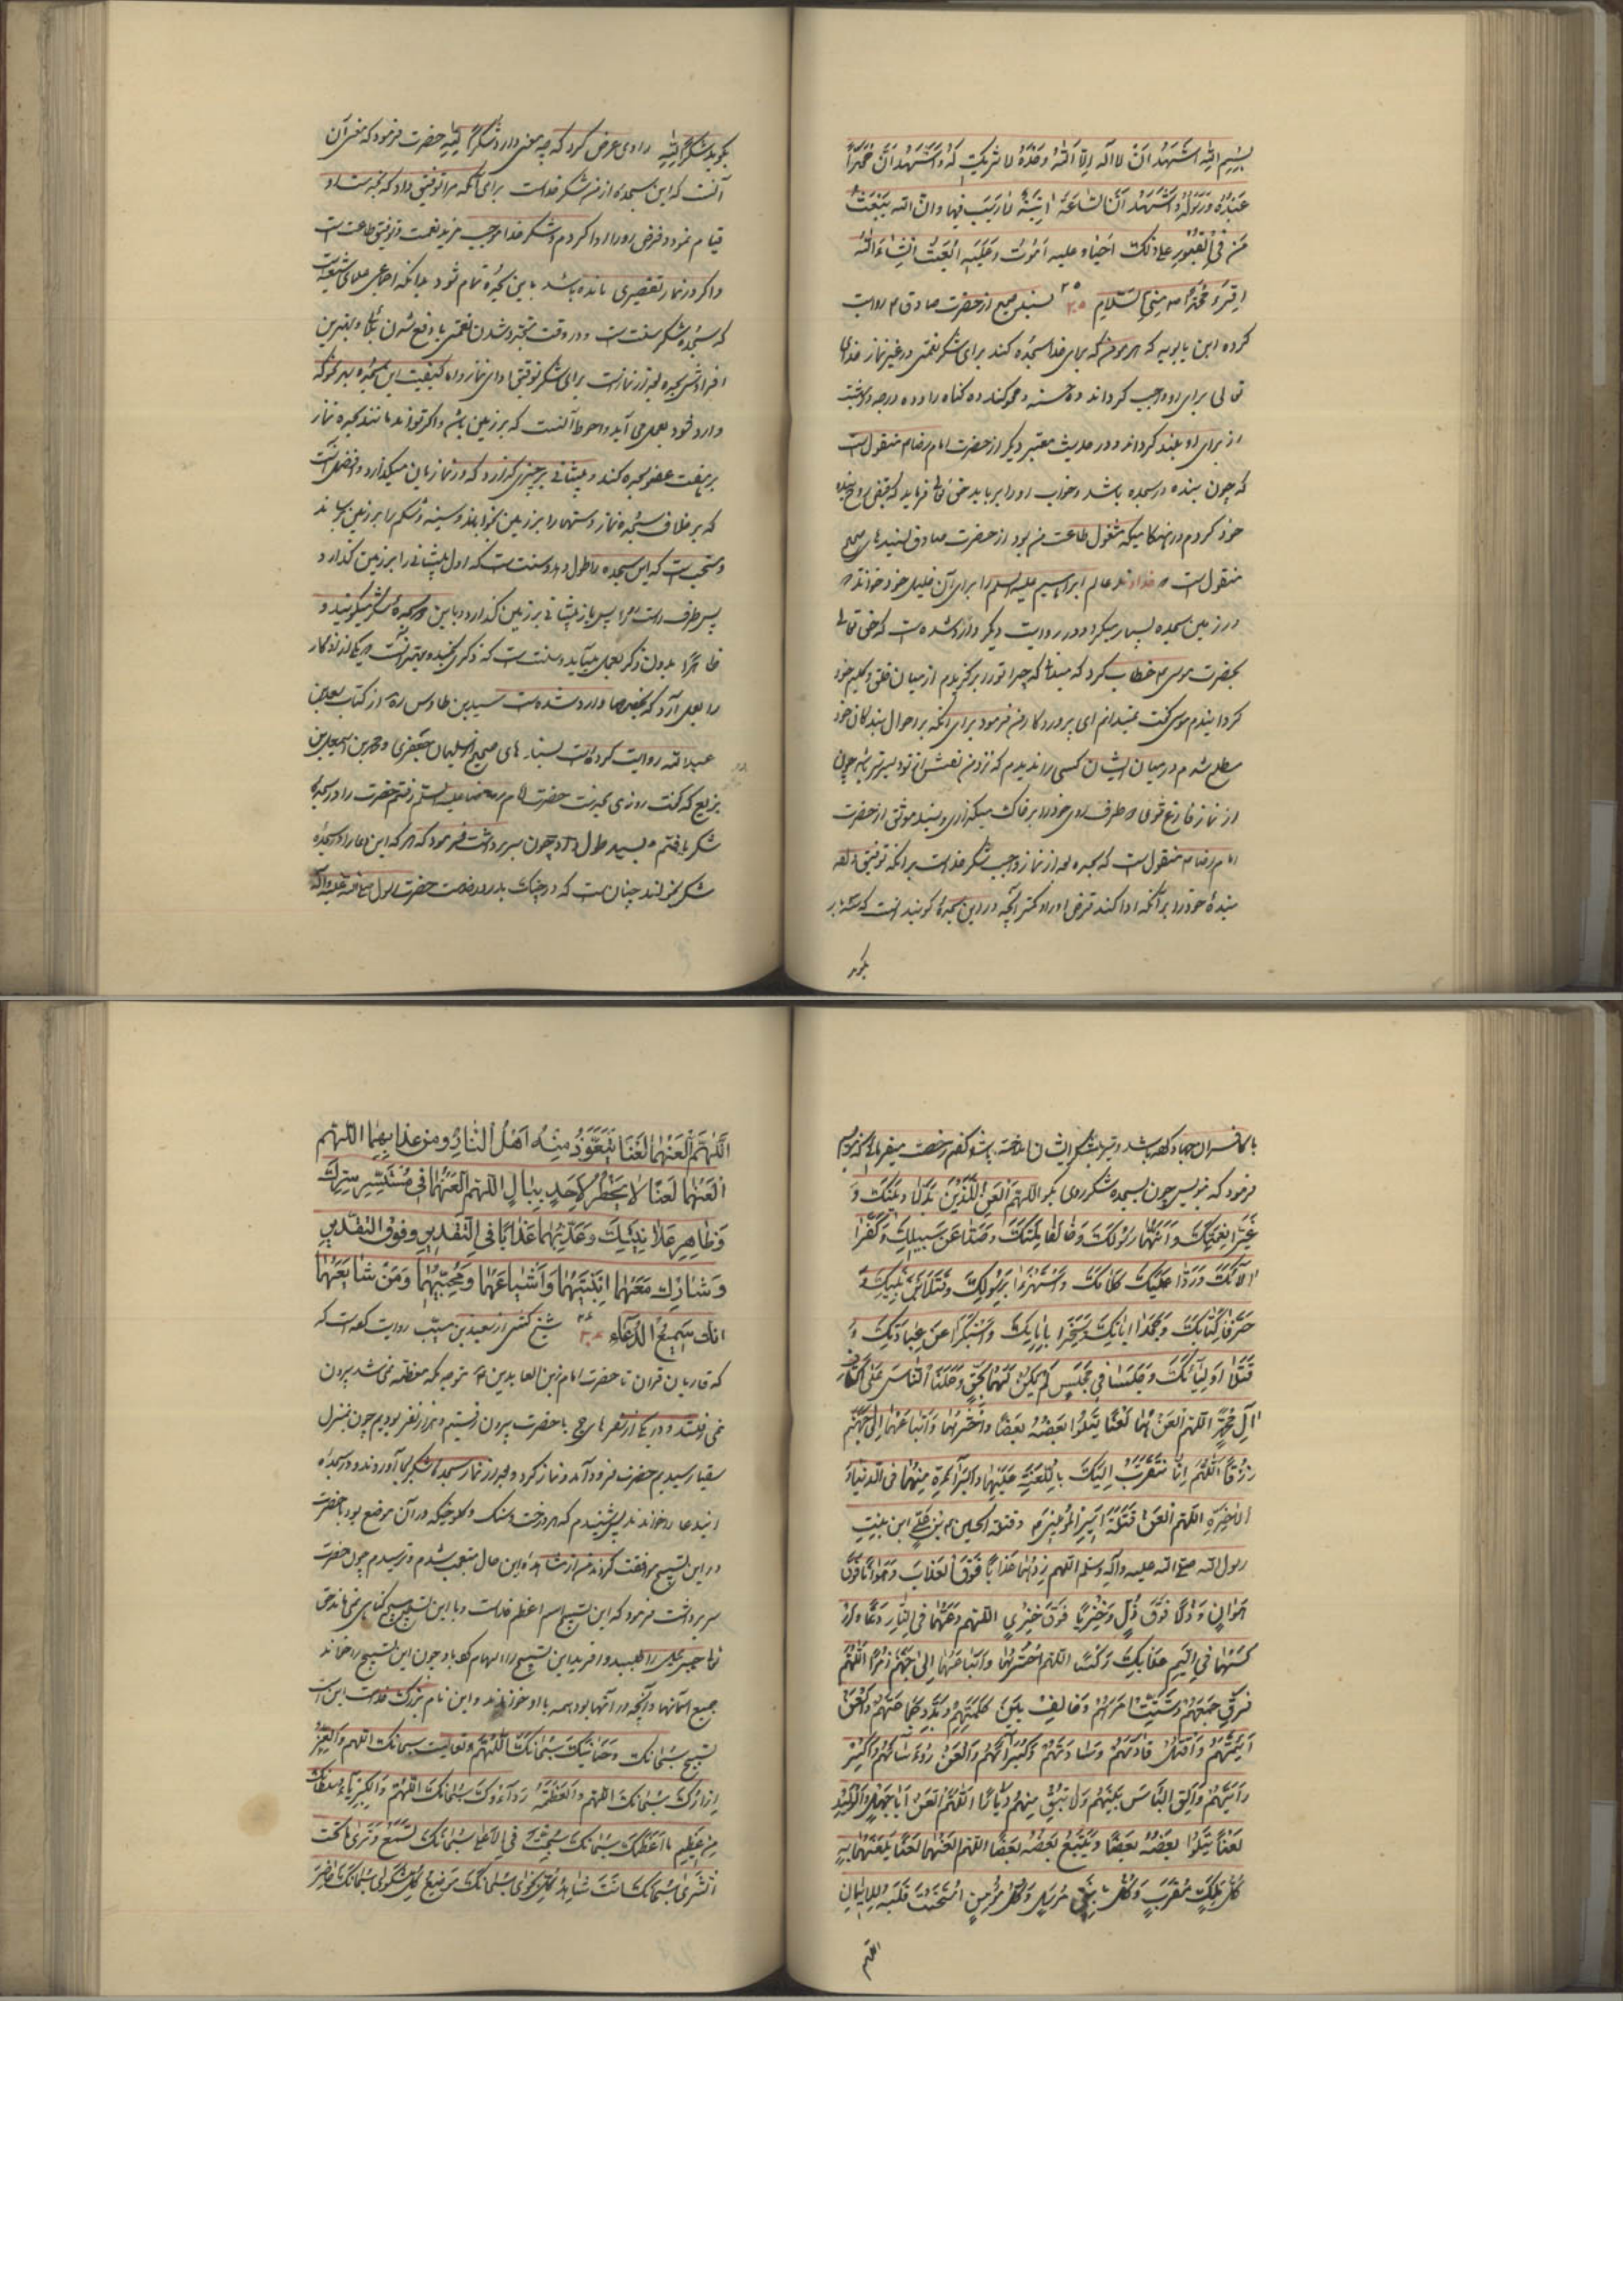 بسم الله اشهد ان لا اله الا الله وحده لا شریک له و اشهد ان محمدا
عبده و رسوله و اشهد ان الساعة آتیة لا ریب فیها و ان الله یبعث
من فی القبور علی ذلک احیا و علیه اموت و علیه ابعث انشاء الله
اقرء محمدا منی السلام ۳۵ بسند صحیح از حضرت صادق م روایت
کرده ابن بابویه که هر مومن که برای خدا سجده کند برای شکر نعمتی در غیر نماز خدای
تعالی برای او واجب کرداند ده حسنه و محو کند ده کناه را و ده درجه در بهشت
از برای او بلند کرداند و در حدیث معتبر دیکر از حضرت امام رضا م منقول است
که چون بنده در سجده باشد و خواب او را برباید حق تعالی فرماید که قبض روح بنده
خود کردم در هنکامیکه مشغول طاعت من بود از حضرت صادق بسندهای صحیح
منقول است که خداوند عالم ابراهیم علیه السلم را برای آن خلیل خود خواند که
در زمین سجده بسیار میکرد و در روایت دیکر وارد شده است که حق تعالی
بحضرت موسی م خطاب کرد که میدانی که چرا تو را برکزیدم از میان خلق و کلیم خود
کردانیدم موسی کفت نمیدانم ای پروردکار من فرمود برای آنکه بر احوال بندکان خود
مطلع شدم در میان ایشان کسی را ندیدم که نزد من نفسش از تو ذلیل‌تر باشد چون
از نماز فارغ میشوی دو طرف روی خود را بر خاک میکذاری و بسند موثق از حضرت
امام رضا م منقول است که سجده بعد از نماز واجب شکر خداست برآنکه توفیق داده
بندۀ خود را برآنکه ادا کند فرض او را و کمتر آنچه در این سجده کویند آنست که سه بار
بکوید
بکوید شکرا لله راوی عرض کرد که چه معنی دارد شکرا لله حضرت فرمود که معنی آن
آنست که این سجده از من شکر خداست برای آنکه مرا توفیق داد که بخدمت او
قیام نمودم و فرض او را ادا کردم و شکر خدا موجب مزید نعمت و توفیق طاعت است
و اکر در نماز تقصیری مانده باشد باین سجده تمام شود بدانکه اجماعی علمای شیعه است
که سجده شکر سنت است و در وقت متجدد شدن نعمتی یا دفع شدن بلائی و بهترین
افرادش سجده بعد از نماز است برای شکر توفیق ادای نماز و اما کیفیت این سجده بهر نحو که
وارد شود بعمل می آید و احوط آنست که بر زمین باشد و اکر تواند مانند سجده نماز
بر هفت عضو سجده کند و پیشانی بر چیزی کذارد که در نماز بان میکذارد و افضل آنست
که بر خلاف سجده نماز دستها را بر زمین بخواباند و سینه و شکم را بر زمین برساند
و مستحب است که این سجده را طول دهد و سنت است که اول پیشانی را بر زمین کذارد و
پس طرف راست رو را پس باز پیشانی بر زمین کذارد و باین دو سجدۀ شکر میکویند و
ظاهرا بدون ذکر بعمل میآید و سنت است که ذکری بخواند و بهتر آنست که یکی از اذکار
را بعمل آرد که بخصوص وارد شده است سید بن طاوس ره از کتاب سعد بن
عبدالله روایت کرده است بسندهای صحیح از سلیمان جعفری و محمد بن اسمعیل بن
بزیع که کفت روزی بخدمت حضرت امام رضا علیه السلم رفتم حضرت را در سجدۀ
شکر یافتم و بسیار طول داد چون سر برداشت فرمود که هر که این دعا را در سجده
شکر بخواند چنان است که در جنک بدر در خدمت حضرت رسول صلی الله علیه وآله
با کافران جهاد کرده باشد و تیر بلشکر ایشان انداخته باشد کفتم رخصت میفرمائی که بنویسم
فرمود که بنویس چون بسجده شکر روی بکو اللهم العن اللذین بدلا دینک و
غیرا نعمتک و اتهما رسولک و خالفا ملتک و صدا عن سبیلک و کفرا
آلائک و ردا علیک کلامک و استهزءا برسولک و قتلا ابن نبیک و
حرفا کتابک و جحدا ایاتک و سخرا بایاتک و استکبرا عن عبادتک و
قتلا اولیائک و جلسا فی مجلس لم یکن لهما بحق و حملا الناس علی اکتاف
ال محمد اللهم العنهما لعنا یتلوا بعضه بعضا و احشرهما و اتباعهما الی جهنم
زرقا اللهم انا نتقرب الیک باللعنة علیهما و البرائة منهما فی الدنیا و
الاخرة اللهم العن قتلة امیر المؤمنین م و قتلة الحسین م بن علی ابن بنت
رسول الله صلی الله علیه وآله وسلم اللهم زدهما عذابا فوق العذاب و هوانا فوق
هوان و ذلا فوق ذل و خزیا فوق خزی اللهم دعهما فی النار دعا و ار
کسهما فی الیم عذابک رکسا اللهم احشرهما و اتباعهما الی جهنم زمرا اللهم
فرق جمعهم و شتت امرهم و خالف بین کلمتهم و بدد جماعتهم و العن
ائمتهم و اقتل قادتهم و سادتهم و کبرائهم و العن رؤساءهم و اکسر
رایتهم و الق الباس بینهم و لا تبق منهم دیارا اللهم العن ابا جهل و الولید
لعنا یتلوا بعضه بعضا و یتبع بعضه بعضا اللهم العنهما لعنا یلعنهما به
کل ملک مقرب و کل نبی مرسل و کل مؤمن امتحنت قلبه للایمان
اللهم
اللهم العنهما لعنا یتعوذ منه اهل النار و من عذابهما اللهم
العنهما لعنا لا یخطر لاحد ببال اللهم العنهما فی مستسر سرک
و ظاهر علانیتک و عذبهما عذابا فی التقدیر و فوق التقدیر
و شارک معهما ابنتیهما و اشیاعهما و محبیهما و من شایعهما
انک سمیع الدعاء ۳۶ شیخ کشی از سعید بن مسیب روایت کرده است که
که قاریان قران تا حضرت امام زین العابدین م متوجه مکه معظمه نمی شد بیرون
نمی رفتند و در یکی از سفرهای حج با حضرت بیرون رفتیم و هزار نفر بودیم چون بمنزل
سقیا رسیدیم حضرت فرود آمد و نماز کرد و بعد از نماز سجدۀ شکر بجا آوردند و در سجده
این دعا را خواندند پس شنیدم که هر درخت و سنک و کلوخیکه در آن موضع بود با حضرت
در این تسبیح موافقت کردند من از مشاهده این حال متعجب شدم و ترسیدم چون حضرت
سر برداشت فرمود که این تسبیح اسم اعظم خداست و با این تسبیح هیچ کناهی نمی ماند حق
تعالی جبرئیل را آفرید این تسبیح را الهام کرد باو چون این تسبیح را خواند
جمیع آسمانها و آنچه در آنها بود همه با او خواندند و این نام بزرک خداست این است
تسبیح سبحانک و حنانیک سبحانک اللهم و تعالیت سبحانک اللهم و العز
ازارک سبحانک اللهم و العظمة رداؤک سبحانک اللهم و الکبریاء سلطانک
من عظیم ما اعظمک سبحانک سبحت فی الاعلی سبحانک تسمع و تری ما تحت
الثری سبحانک انت شاهد کل نجوی سبحانک موضع کل شکوی سبحانک حاضر